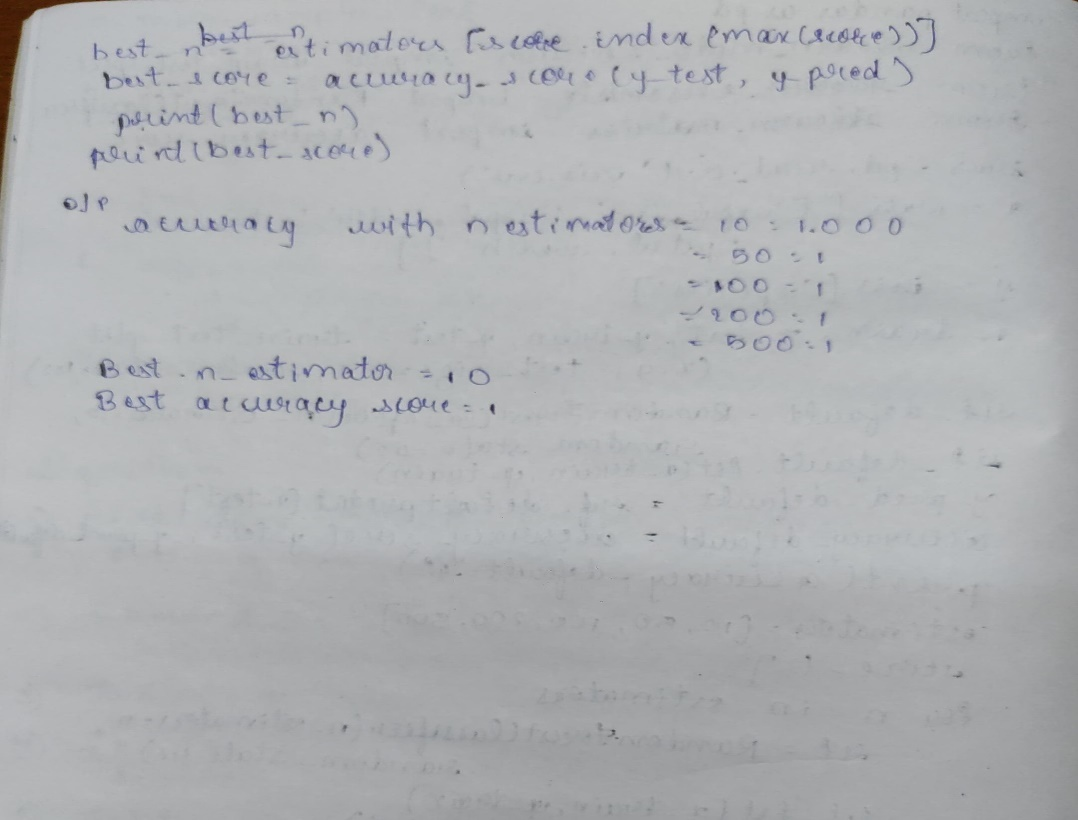 best_n = estimators [score.index (max(score))]
best_score = accuracy_score (y_test, y_pred)
print(best_n)
print(best_score)
o/p
accuracy with n estimators = 10 : 1.000
= 50 : 1
= 100 : 1
= 200 : 1
= 500 : 1
Best n_estimator = 10
Best accuracy score = 1